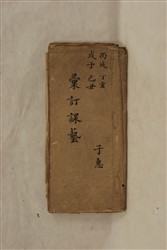 丙戌 丁亥
戊子 己丑
彙訂課藝
子惠